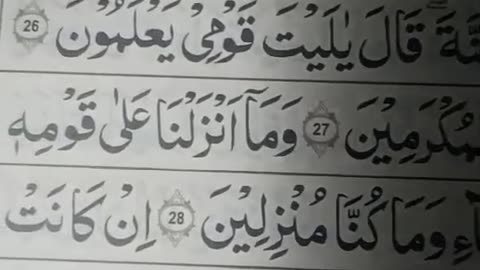 قَالَ يٰلَيْتَ قَوْمِيْ يَعْلَمُوْنَ 26
27 وَمَآ اَنْزَلْنَا عَلٰى قَوْمِهٖ
وَمَا كُنَّا مُنْزِلِيْنَ 28 اِنْ كَانَتْ